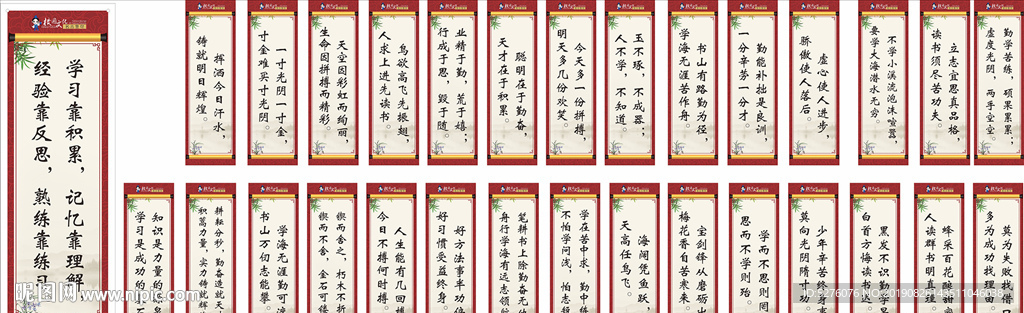 校园文化
学习靠积累，记忆靠理解，
经验靠反思，熟练靠练习
挥洒今日汗水，
铸就明日辉煌。
一寸光阴一寸金，
寸金难买寸光阴。
天空因彩虹而绚丽，
生命因拼搏而精彩。
鸟欲高飞先振翅，
人求上进先读书。
业精于勤，荒于嬉；
行成于思，毁于随。
聪明在于勤奋，
天才在于积累。
今天多一份拼搏，
明天多几份欢笑。
玉不琢，不成器；
人不学，不知道。
书山有路勤为径，
学海无涯苦作舟
勤能补拙是良训，
一分辛苦一分才。
虚心使人进步，
骄傲使人落后。
不学小溪流泡沫喧嚣，
要学大海潜水无穷。
立志宜思真品格，
读书须尽苦功夫
勤学苦练，硕果累累；
虚度光阴，两手空空。
知识是力量的
学习是成功的
耕耘分秒，勤奋造就天
积蓄力量，实力铸就辉
学海无涯勤可渡
书山万仞志能攀
锲而舍之，朽木不折
锲而不舍，金石可镂
人生能有几回搏
今日不搏何时搏
好方法事半功倍
好习惯受益终身
笔耕书上除勤奋无
舟行学海有远志领
学在苦中求，勤中
不怕学问浅，怕志
海阔凭鱼跃，
天高任鸟飞。
宝剑锋从磨砺出
梅花香自苦寒来
学而不思则罔
思而不学则殆
少年辛苦终身事
莫向光阴惰寸功
黑发不识勤学
白首方悔读书迟
蜂采百花酿甜
人读群书明真理
莫为失败找借口
多为成功找理由
昵图网 www.nipic.com